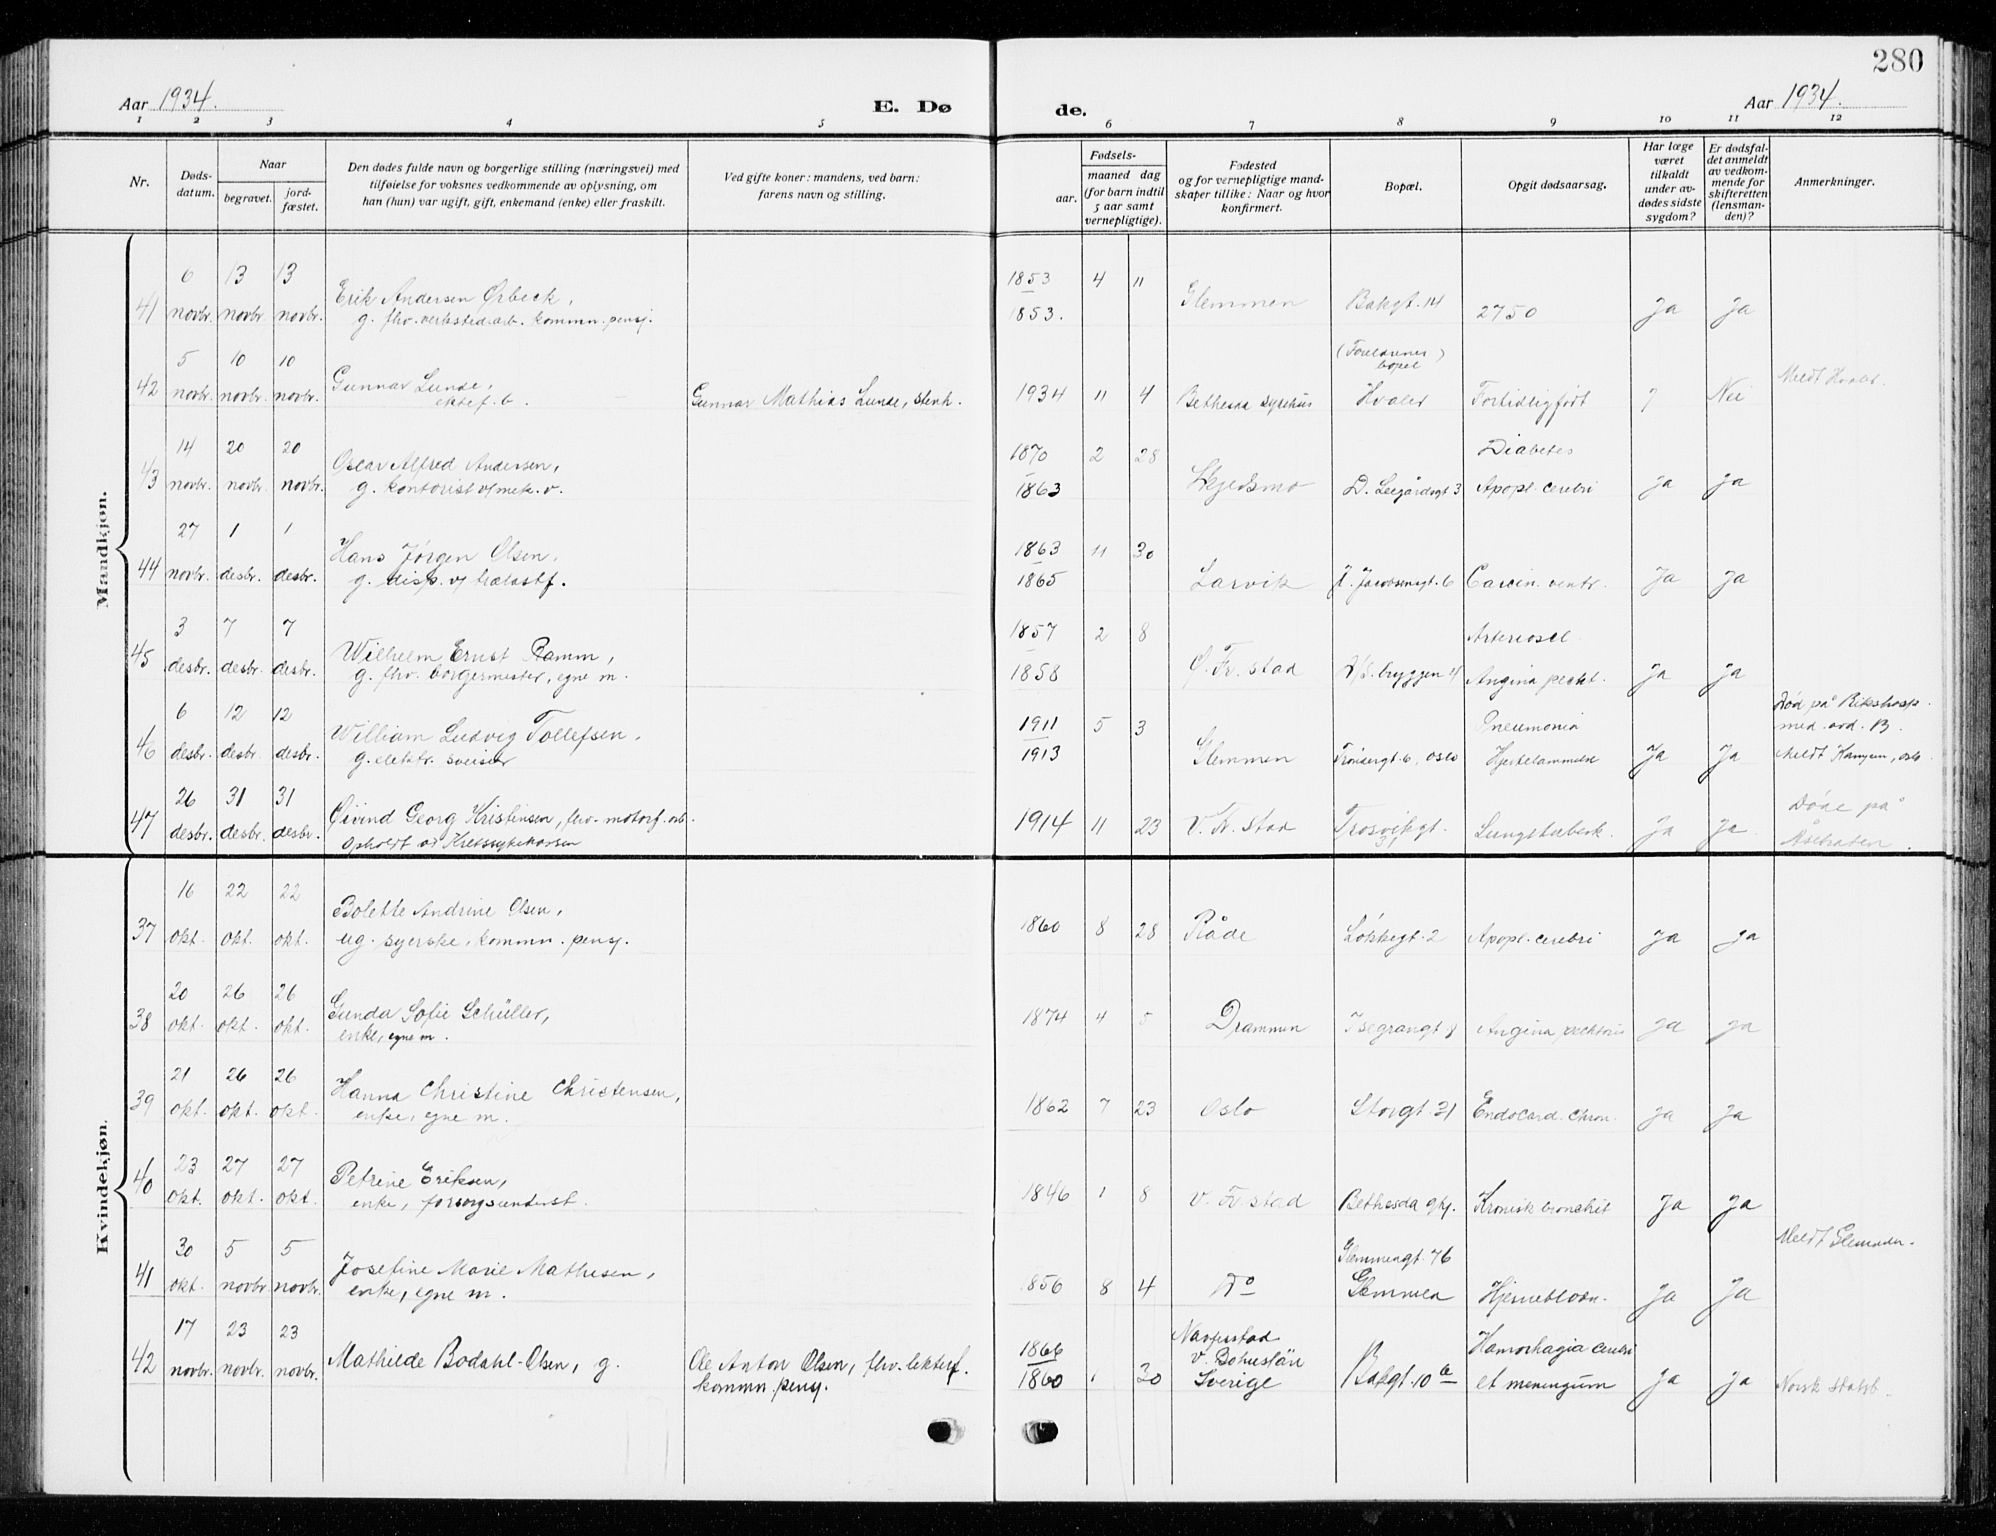 280
Aar 1934.
E. Dø de.
Aar 1934.
1 2 3 4 5 6 7 8 9 10 11 12
Nr.
Døds-
datum.
Naar
begravet.
jord-
fæstet.
Den dødes fulde navn og borgerlige stilling (næringsvei) med
tilføielse for voksnes vedkommende av oplysning, om
han (hun) var ugift, gift, enkemand (enke) eller fraskilt.
Ved gifte koner: mandens, ved barn:
farens navn og stilling.
Fødsels-
aar.
maaned dag
(for barn indtil
5 aar samt
vernepligtige).
Fødested
og for vernepligtige mand-
skaper tillike: Naar og hvor
konfirmert.
Bopæl.
Opgit dødsaarsag.
Har læge
været
tilkaldt
under av-
dødes sidste
sygdom?
Er dødsfal-
det anmeldt
av vedkom-
mende for
skifteretten
(lensman-
den)?
Anmerkninger.
Mandkjøn.
6 13 13 1853 4 11
41 novbr. novbr. novbr. Erik Andersen Ørbeck, Glemmen Bakgt. 14 2750 Ja Ja
g. fhv. verkstedarb. kommn. pensj. 1853.
5 10 10 (Foreldrenes
bopel)
42 novbr. novbr. novbr. Gunnar Lunde, Meldt Hvaler.
ektef. b. Gunnar Mathias Lunde, stenh. 1934 11 4 Bethesda sykehus Hvaler Fortidligfødt ? Nei
14 20 20 1870 2 28 Diabetes
43 novbr. novbr. novbr. Oscar Alfred Andersen,
g. kontorist v/ mek. v. 1863 Skjedsmo D. Leegårdsgt 3 Apopl. cerebri Ja Ja
27 1 1 1863 11 30
44 novbr. desbr. desbr. Hans Jørgen Olsen,
g. disp. v/ trælastf. 1865 Larvik J. Jacobsensgt. 6 Carcin. ventr. Ja Ja
3 7 7 1857 2 8 Arterioscl.
45 desbr. desbr. desbr. Wilhelm Ernst Ramm,
g. fhv. borgermester, egne m. 1858 Ø. Fr. stad bryggen Angina pectt. Ja Ja
6 12 12 1911 5 3 Pneumonia Død på Rikshosp.
med. avd. B.
46 desbr. desbr. desbr. William Ludvig Tollefsen,
g. elektr. sveiser 1913 Glemmen oslo Hjertelammelse Ja Ja Meldt oslo.
26 31 31
47 desbr. desbr. desbr. Øivind Georg Kristensen, fhv. motorf. arb. 1914 11 23 V. Fr. stad Trosvikgt. Lungetuberk. Ja Ja. Døde på
opholdt av Kretssykekassen
Kvindekjøn.
16 22 22
37 okt. okt. okt. Bolette Andrine Olsen, 1860 8 28 Råde Løkkegt. 2 Apopl. cerebri Ja ja
ug. syerske, kommn. pensj.
20 26 26
38 okt. okt. okt. Gunda Sofie Schüller, 1874 4 5 Drammen Isegrangt 8 Angina pectoris ja ja
enke, egne m.
21 26 26
39 okt. okt. okt. Hanna Christine Christensen, 1862 7 23 Oslo Storgt. 21 Endocard. chron. Ja Ja
enke, egne m.
23 27 27
40 okt. okt. okt. Petrine Eriksen, 1846 1 8 V. Fr. stad Bethesda ghj. Kronisk bronchit Ja Ja
enke, forsorgsunderst.
30 5 5 Glemmengt. 76 Meldt
41 okt. novbr. novbr. Josefine Marie Mathisen, 1856 8 4 Do Glemmen Hjerneblødn. Ja Ja
enke, egne m.
17 23 23 1866 Navferstad Hamorhagia cerebri
42 novbr. novbr. novbr. Mathilde Bodahl-Olsen, g. Ole Anton Olsen, fhv. lekterf. v. Bohuslän
kommn. pensj. 1860 1 30 Sverige Bakgt. 10 b et meningum Ja Ja Norsk statsb.